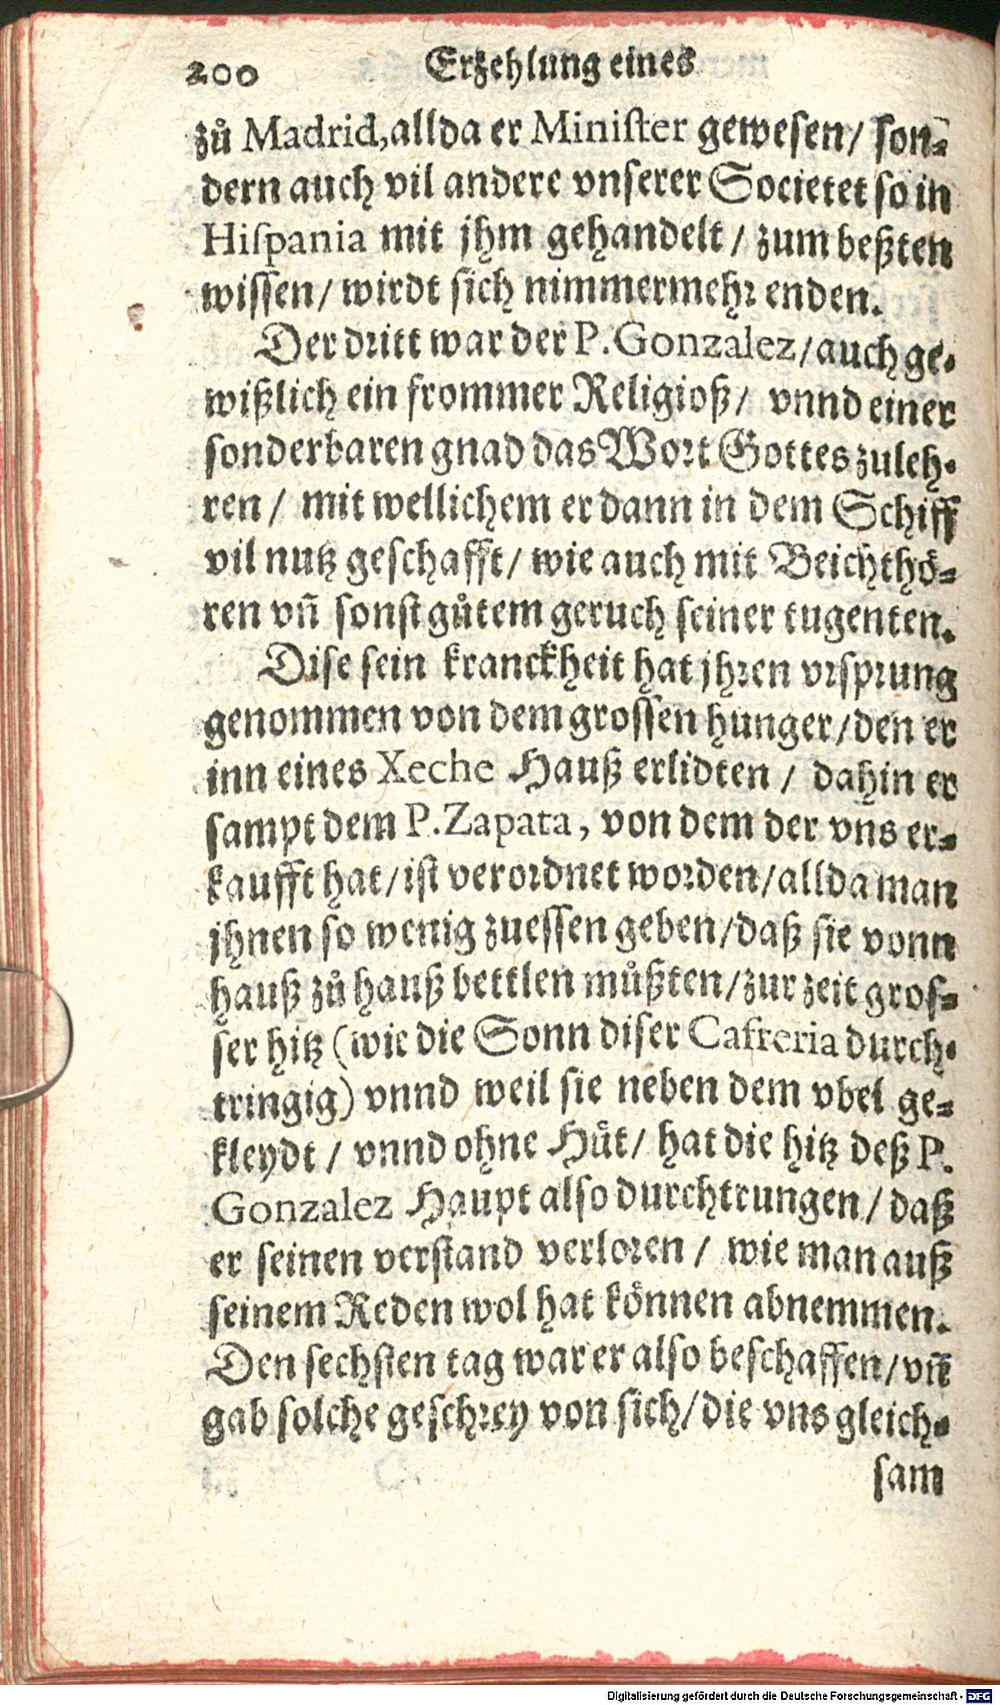 200 Erzehlung eines
zů Madrid, allda er Miniſter geweſen/ ſon-
dern auch vil andere vnſerer Societet ſo in
Hiſpania mit jhm gehandelt / zum beßten
wiſſen/ wirdt ſich nimmermehr enden.
Der dritt war der P. Gonzalez/auch ge-
wißlich ein frommer Religioß/ vnnd einer
ſonderbaren gnad das Wort Gottes zuleh-
ren / mit wellichem er dann in dem Schiff
vil nutz geſchafft/ wie auch mit Beichthö-
ren vñ ſonſt gůtem geruch ſeiner tugenten.
Diſe ſein kranckheit hat jhren vrſprung
genommen von dem groſſen hunger/den er
inn eines Xeche Hauß erlidten / dahin er
ſampt dem P. Zapata, von dem der vns er-
kaufft hat/iſt verordnet worden/allda man
jhnen ſo wenig zueſſen geben/daß ſie vonn
hauß zů hauß bettlen můßten/zur zeit groſ-
ſer hitz (wie die Sonn diſer Cafreria durch-
tringig) vnnd weil ſie neben dem vbel ge-
kleydt / vnnd ohne Hůt/ hat die hitz deß P.
Gonzalez Haupt alſo durchtrungen/ daß
er ſeinen verſtand verloren / wie man auß
ſeinem Reden wol hat können abnemmen.
Den ſechſten tag war er alſo beſchaffen/vñ
gab ſolche geſchrey von ſich/die vns gleich-
ſam
Digitalisierung gefördert durch die Deutsche Forschungsgemeinschaft - DFG